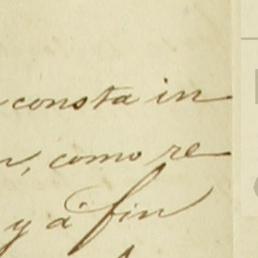 consta in
n, como re
y á fin